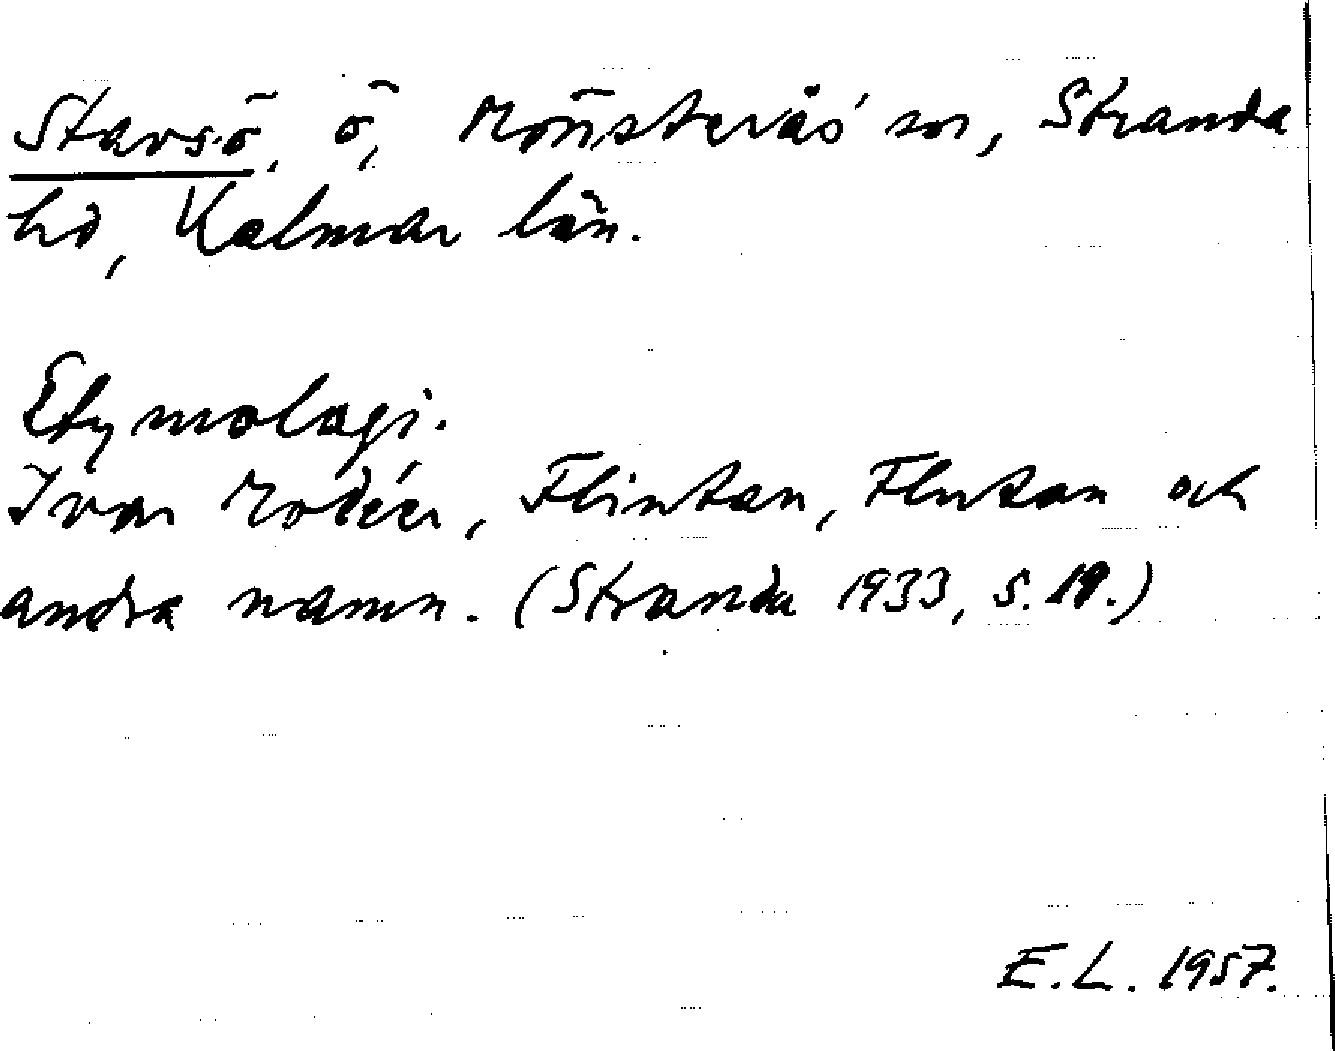 Stavsö, ö, Mönsterås sn, Stranda
hd, Kalmar län.
Etymologi.
Ivar Modéer, Flintan, Flutan och
andra namn. (Stranda 1933, s. 19.)
E.L. 1957.